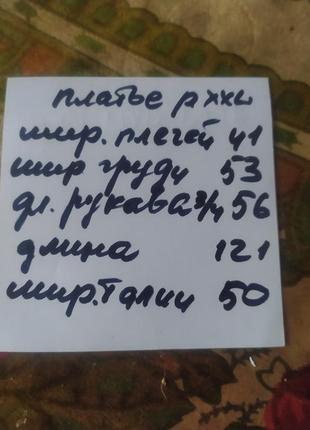 платье р ххл
шир. плечей 41
шир груди 53
дл. рукава 3/4 56
длина 121
шир. талии 50